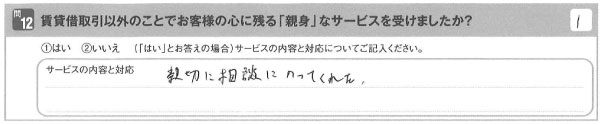 問12 賃貸借取引以外のことでお客様の心に残る「親身」なサービスを受けましたか? 1
①はい ②いいえ (「はい」とお答えの場合)サービスの内容と対応についてご記入ください。
サービスの内容と対応
親切に相談にのってくれた。